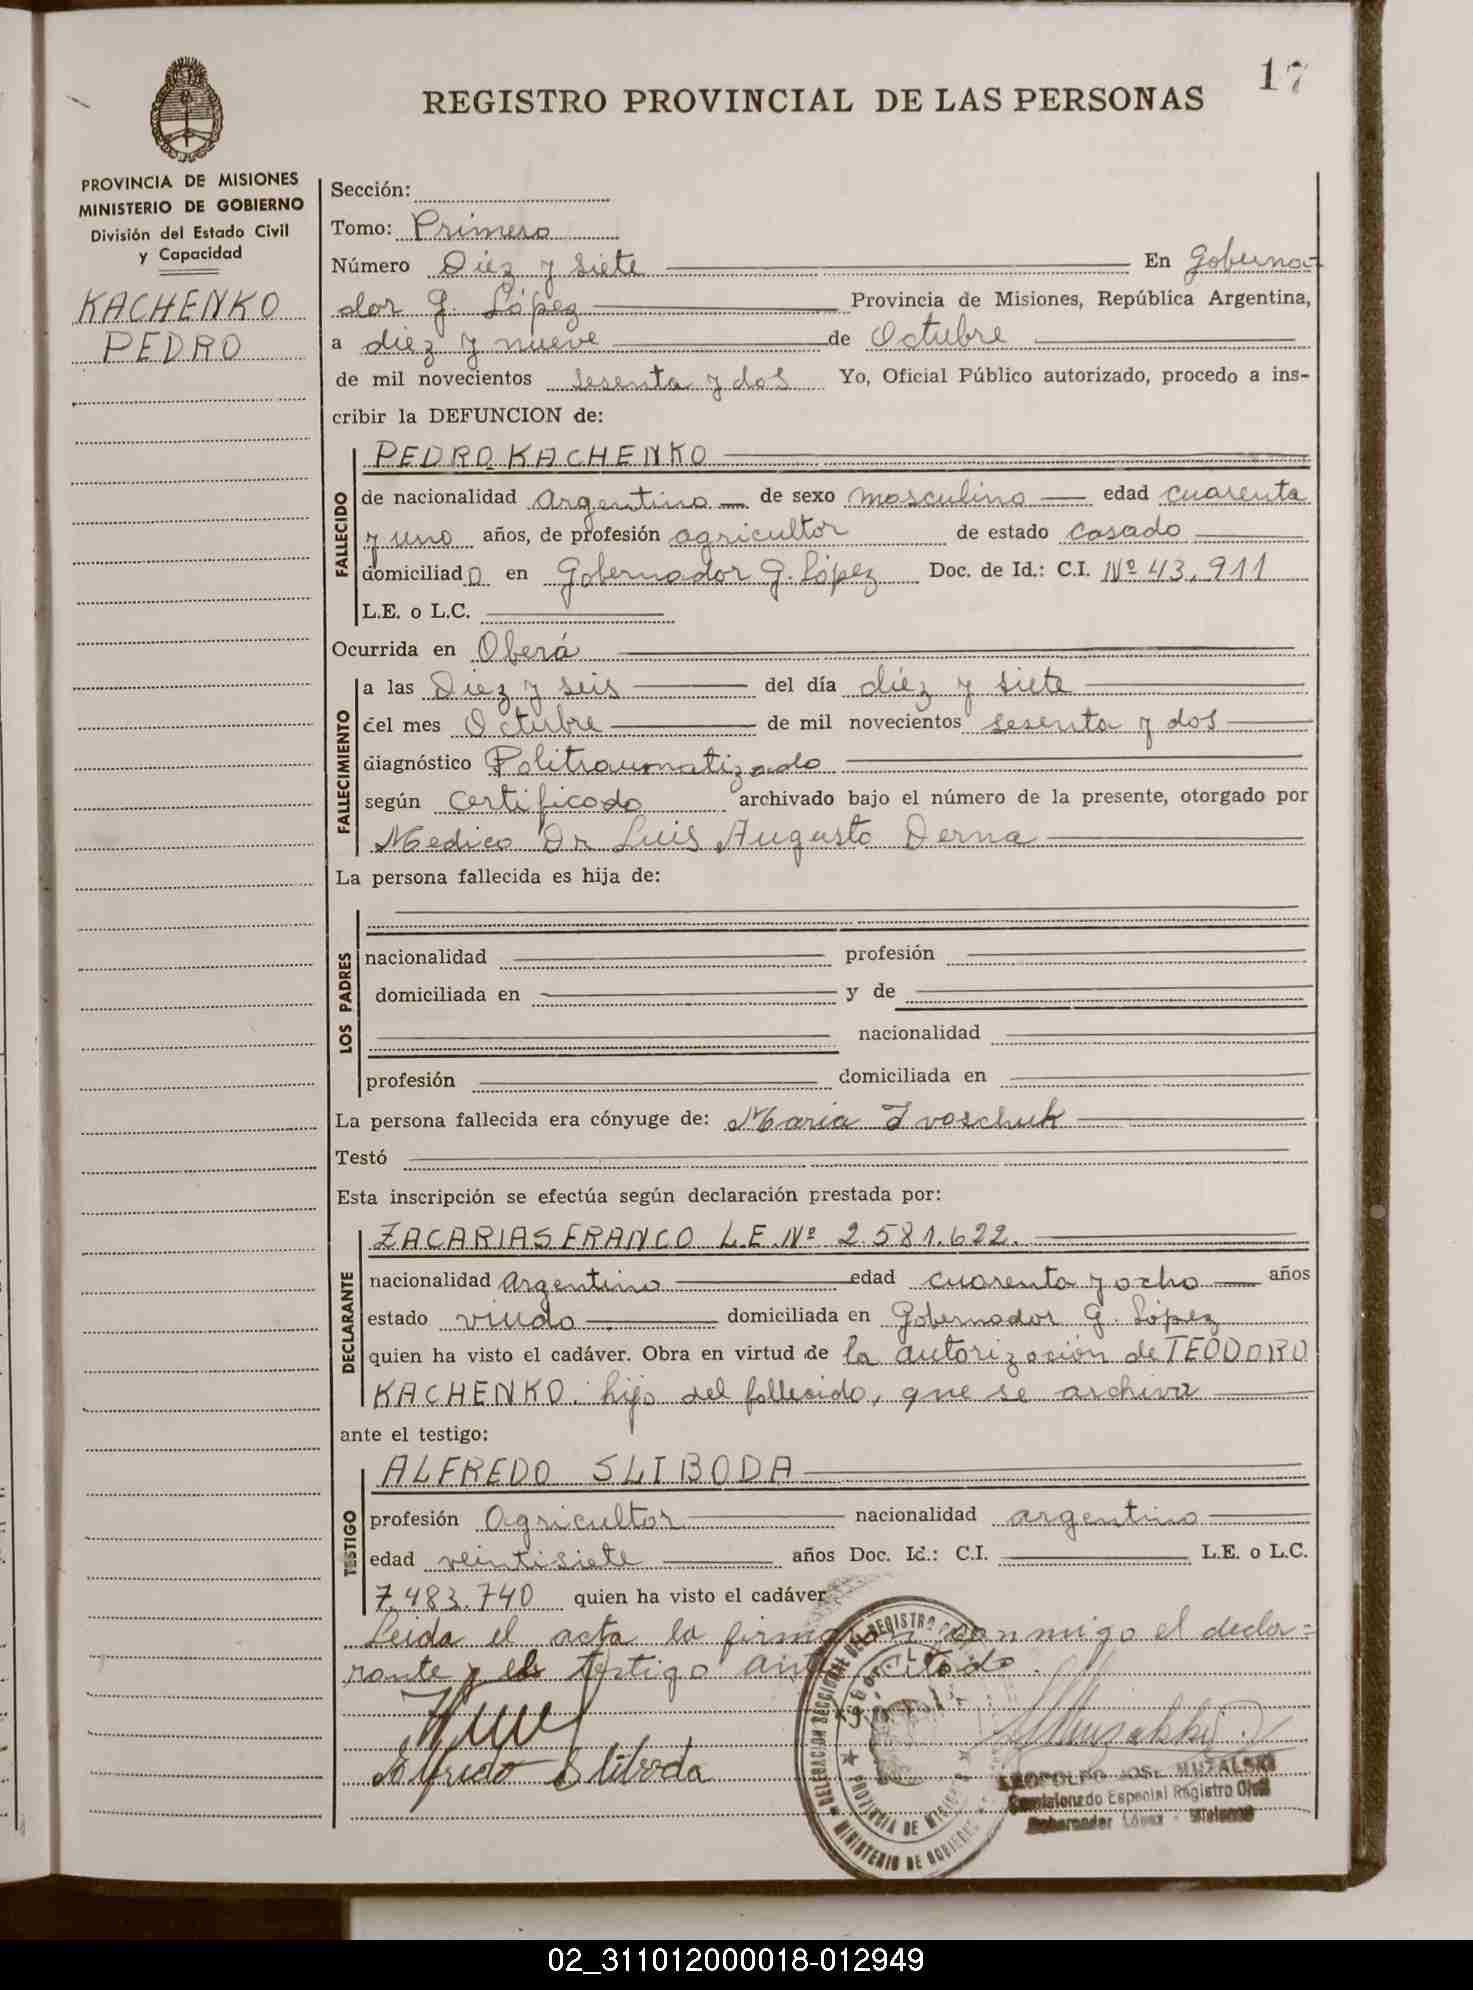 17
REGISTRO PROVINCIAL DE LAS PERSONAS
PROVINCIA DE MISIONES
MINISTERIO DE GOBIERNO
División del Estado Civil
y Capacidad
KACHENKO
PEDRO
Sección:
Tomo: Primero
Número Diez y siete En Goberna-
dor G. López Provincia de Misiones, República Argentina,
a diez y nueve de Octubre
de mil novecientos sesenta y dos Yo, Oficial Público autorizado, procedo a ins-
cribir la DEFUNCION de:
PEDRO KACHENKO
FALLECIDO
de nacionalidad argentino de sexo masculino edad cuarenta
y uno años, de profesión agricultor de estado casado
domiciliado en Gobernador G. López Doc. de Id.: C.I. Nº 43.911
L.E. o L.C.
Ocurrida en Oberá
FALLECIMIENTO
a las Diez y seis del día diéz y siete
del mes Octubre de mil novecientos sesenta y dos
diagnóstico Politraumatizado
según certificado archivado bajo el número de la presente, otorgado por
Medico Dr Luis Augusto Derna
La persona fallecida es hija de:
LOS PADRES
nacionalidad profesión
domiciliada en y de
nacionalidad
profesión domiciliada en
La persona fallecida era cónyuge de: Maria Ivoschuk
Testó
Esta inscripción se efectúa según declaración prestada por:
DECLARANTE
ZACARIAS FRANCO L.E. Nº 2.581.622.
nacionalidad argentino edad cuarenta y ocho años
estado viudo domiciliada en Gobernador G. López
quien ha visto el cadáver. Obra en virtud de la autorización de TEODORO
KACHENKO. hijo del fallecido, que se archiva
ante el testigo:
TESTIGO
ALFREDO SLIBODA
profesión Agricultor nacionalidad argentino
edad veintisiete años Doc. Id.: C.I. L.E. o L.C.
7.483.740 quien ha visto el cadáver
Leida el acta la firman conmigo el decla=
rante y el testigo ante citado.
Alfredo Sliboda
DELEGACION SECCIONAL DEL REGISTRO
PROVINCIA DE MISIONES
MINISTERIO DE GOBIERNO
LEOPOLDO JOSE MUZALSKI
Comisionado Especial Registro Civil
Gobernador López - Misiones
02_311012000018-012949